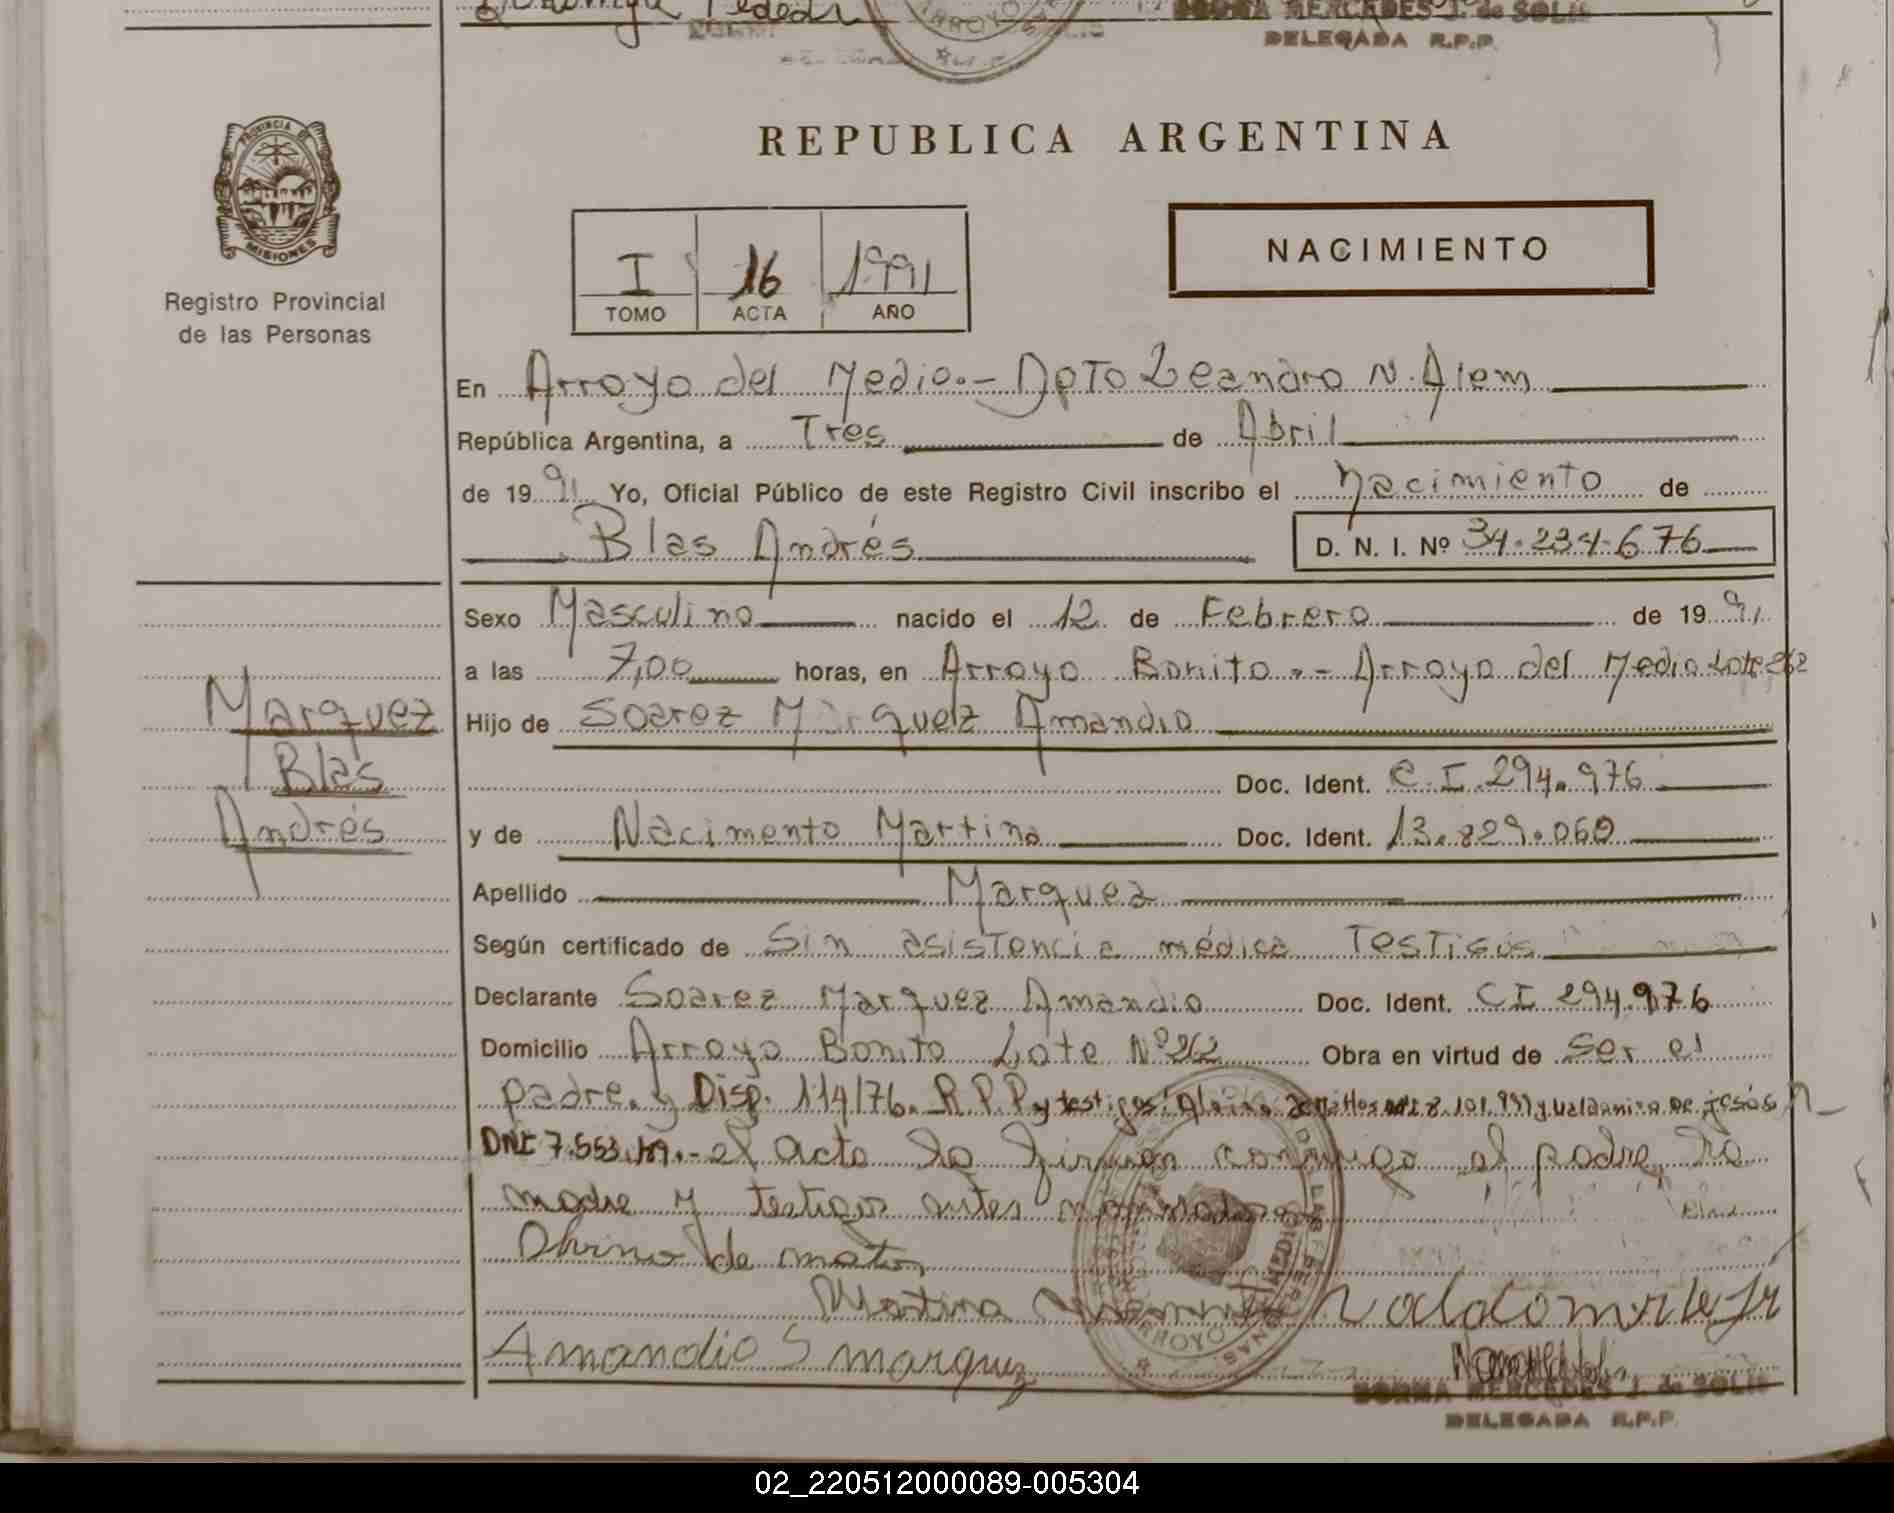 NORMA MERCEDES J. de SOLIS
DELEGADA R.P.P.
PROVINCIA DE
MISIONES
Registro Provincial
de las Personas
REPUBLICA ARGENTINA
NACIMIENTO
I 16 1991
TOMO ACTA AÑO
En Arroyo del Medio.- Dpto Leandro N. Alem
República Argentina, a Tres de Abril
de 1991 Yo, Oficial Público de este Registro Civil inscribo el Nacimiento de
Blas Andrés D. N. I. Nº 34.234.676
Sexo Masculino nacido el 12 de Febrero de 1991
a las 7,00 horas, en Arroyo Bonito.- Arroyo del Medio Lote 262
Marquez
Blas
Andrés
Hijo de Soarez Marquez Amandio
Doc. Ident. C.I. 294.976
y de Nacimento Martina Doc. Ident. 13.829.060
Apellido Marquez
Según certificado de Sin asistencia médica Testigos
Declarante Soarez Marquez Amandio Doc. Ident. CI 294.976
Domicilio Arroyo Bonito Lote Nº 262 Obra en virtud de Ser el
padre. y Disp. 114/76. R.P.P. y testigos: de Mattos 8.101.939 y Valdomiro De Jesús
DNI 7.553. .- el acta la firman conmigo el padre, la
madre y testigos antes nombrados
de matos
Martina
Valdomiro
Amandio S marquez
NORMA MERCEDES J. de SOLIS
DELEGADA R.P.P.
02_220512000089-005304